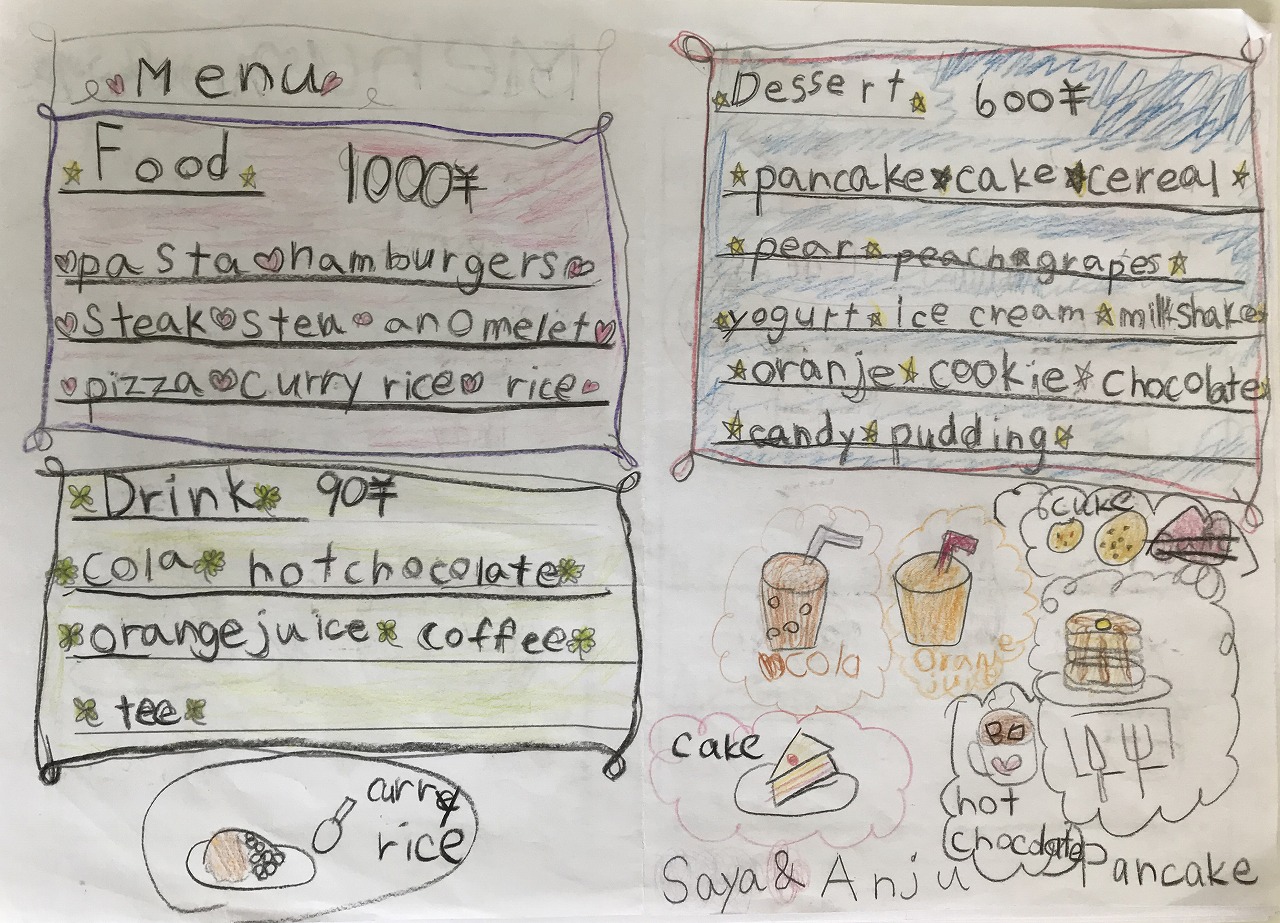 Menu
Food 1000¥
pasta hamburgers
steak steu an omelet
pizza curry rice rice
Drink 90¥
cola hot chocolate
orange juice coffee
tee
curry
rice
Dessert 600¥
pancake cake cereal
pear peach grapes
yogurt ice cream milkshake
oranje cookie chocolate
candy pudding
cola
orange
juice
cake
hot
chocolate
Pancake
Saya & Anju